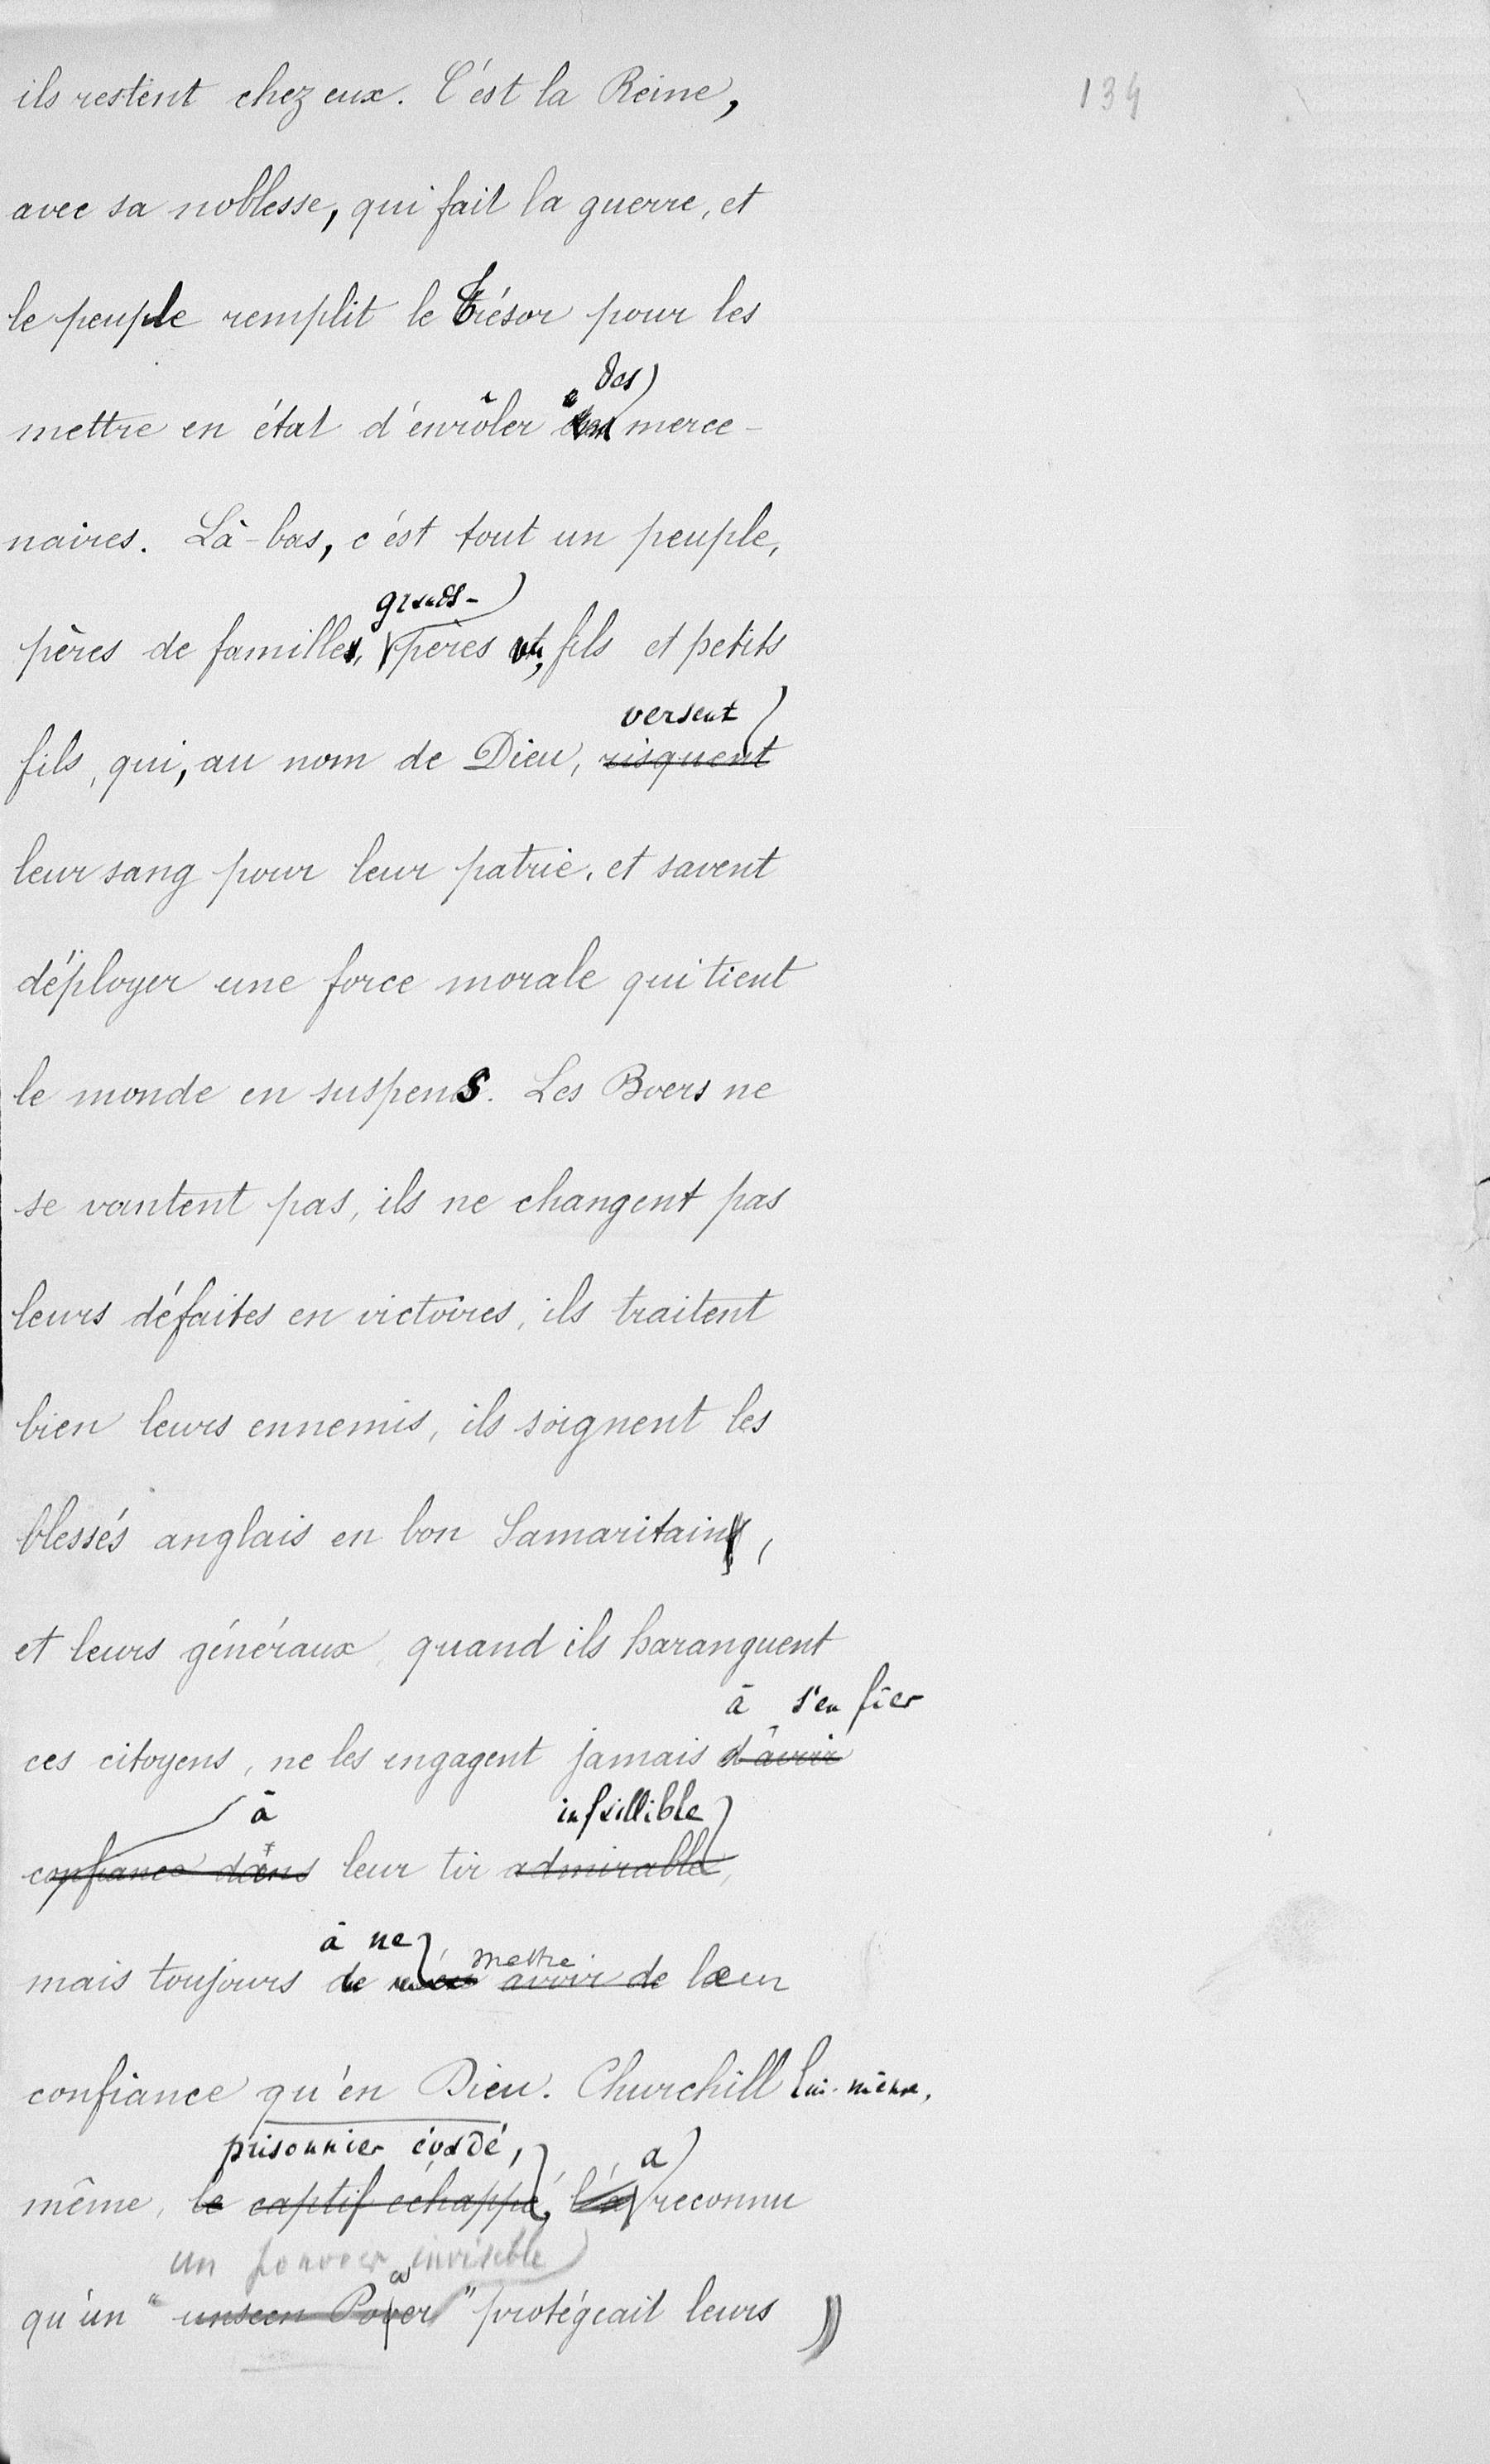 134
ils restent chez eux. C'est la Reine,
avec sa noblesse, qui fait la guerre, et
le peuple remplit le Trésor pour les
des
mettre en état d'enrôler merce-
naires. Là-bas, c'est tout un peuple,
grands-
pères de famille, pères, fils et petits
versent
fils, qui, au nom de Dieu, risquent
leur sang pour leur patrie, et savent
déployer une force morale qui tient
le monde en suspens. Les Boers ne
se vantent pas, ils ne changent pas
leurs défaites en victoires, ils traitent
bien leurs ennemis, ils soignent les
blessés anglais en bon Samaritain,
et leurs généraux, quand ils haranguent
à s'en fier
ces citoyens, ne les engagent jamais d'avoir
à infaillible
confiance dans leur tir admirable,
à ne mettre
mais toujours de avoir de leur
confiance qu'en Dieu. Churchill lui-même,
prisonnier évadé, a
même, le captif échappé, l'a reconnu
un pouvoir invisible
w
qu'un "unseen Pover" protégeait leurs